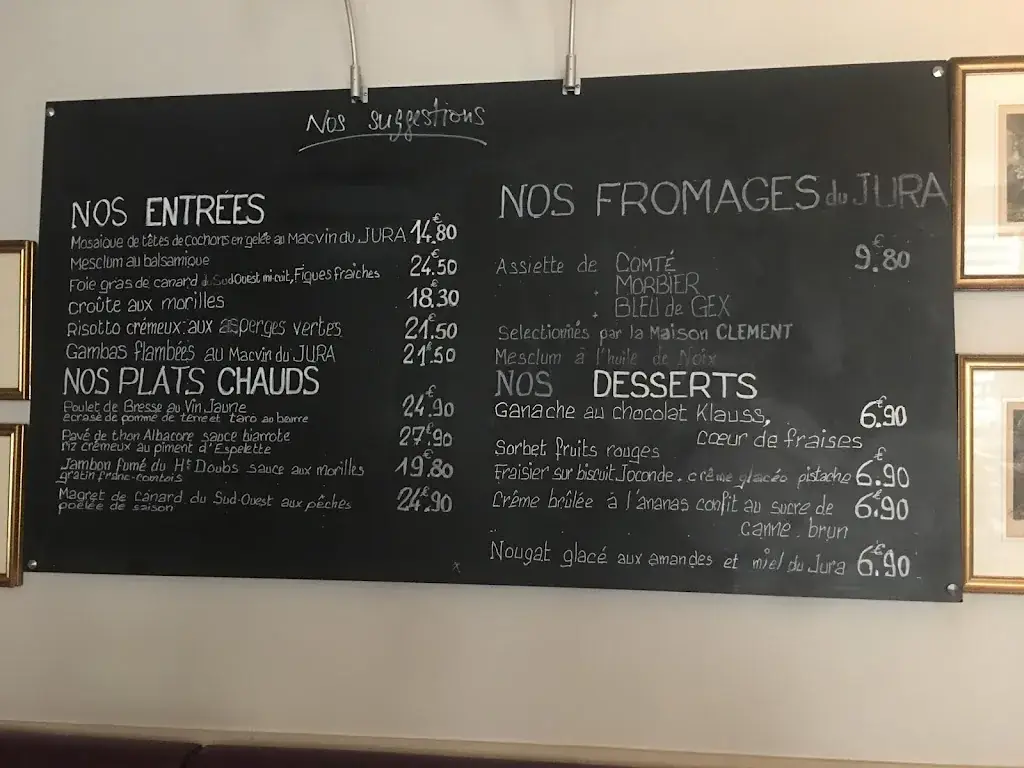 Nos suggestions
NOS ENTRÉES
Mosaique de têtes de cochons en gelée au Macvin du JURA 14.80€
Mesclum au balsamique
Foie gras de canard du Sud Ouest mi-cuit, Figues fraîches 24.50€
Croûte aux morilles 18.30€
Risotto crémeux aux asperges vertes 21.50€
Gambas flambées au Macvin du JURA 21.50€
NOS PLATS CHAUDS
Poulet de Bresse au Vin Jaune 24.90€
écrasé de pomme de terre et taro au beurre
Pavé de thon Albacore sauce biarrote 27.90€
riz crémeux au piment d'Espelette
Jambon fumé du Ht Doubs sauce aux morilles 19.80€
gratin franc-comtois
Magret de canard du Sud-Ouest aux pêches 24.90€
poêlée de saison
NOS FROMAGES du JURA
Assiette de COMTÉ 9.80€
MORBIER
BLEU de GEX
Selectionnés par la Maison CLEMENT
Mesclum à l'huile de Noix
NOS DESSERTS
Ganache au chocolat Klauss, 6.90€
cœur de fraises
Sorbet fruits rouges
Fraisier sur biscuit Joconde. crème glacée pistache 6.90€
Crème brûlée à l'ananas confit au sucre de 6.90€
canne brun
Nougat glacé aux amandes et miel du Jura 6.90€